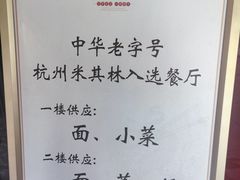 中华老字号
杭州米其林入选餐厅
一楼供应:
面、小菜
二楼供应:
面、菜